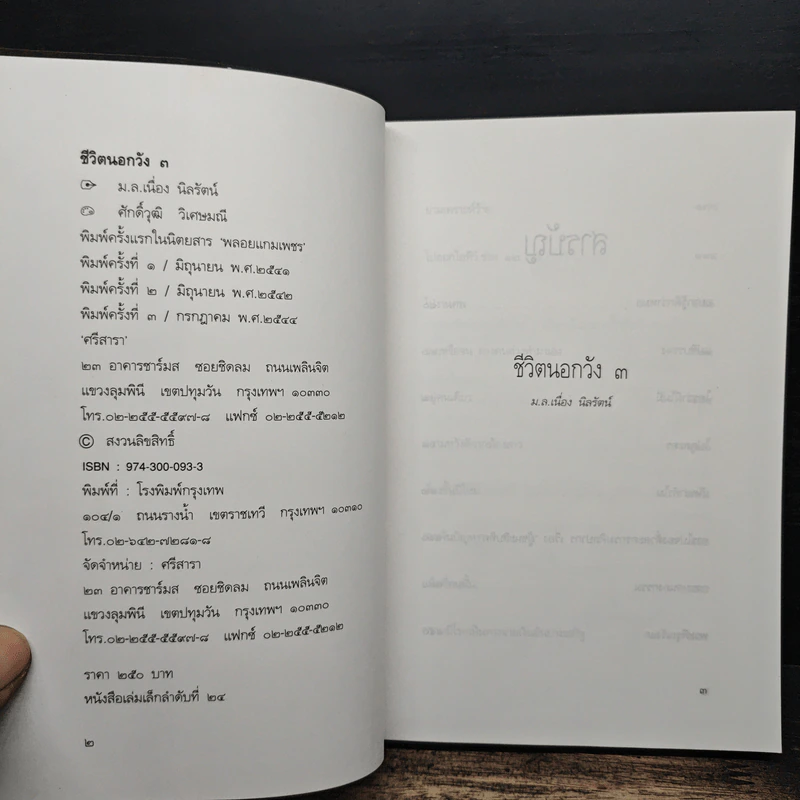 ชีวิตนอกวัง ๓
ม.ล.เนื่อง นิลรัตน์
ศักดิ์วุฒิ วิเศษมณี
พิมพ์ครั้งแรกในนิตยสาร 'พลอยแกมเพชร'
พิมพ์ครั้งที่ ๑ / มิถุนายน พ.ศ.๒๕๔๑
พิมพ์ครั้งที่ ๒ / มิถุนายน พ.ศ.๒๕๔๒
พิมพ์ครั้งที่ ๓ / กรกฎาคม พ.ศ.๒๕๔๔
'ศรีสารา'
๒๓ อาคารชาร์มส ซอยชิดลม ถนนเพลินจิต
แขวงลุมพินี เขตปทุมวัน กรุงเทพฯ ๑๐๓๓๐
โทร.๐๒-๒๕๕-๕๕๙๗-๘ แฟกซ์ ๐๒-๒๕๕-๕๒๑๒
© สงวนลิขสิทธิ์
ISBN : 974-300-093-3
พิมพ์ที่ : โรงพิมพ์กรุงเทพ
๑๐๔/๑ ถนนรางน้ำ เขตราชเทวี กรุงเทพฯ ๑๐๓๑๐
โทร.๐๒-๖๔๒-๗๒๘๑-๘
จัดจำหน่าย : ศรีสารา
๒๓ อาคารชาร์มส ซอยชิดลม ถนนเพลินจิต
แขวงลุมพินี เขตปทุมวัน กรุงเทพฯ ๑๐๓๓๐
โทร.๐๒-๒๕๕-๕๕๙๗-๘ แฟกซ์ ๐๒-๒๕๕-๕๒๑๒
ราคา ๒๕๐ บาท
หนังสือเล่มเล็กลำดับที่ ๒๔
๒
ชีวิตนอกวัง ๓
ม.ล.เนื่อง นิลรัตน์